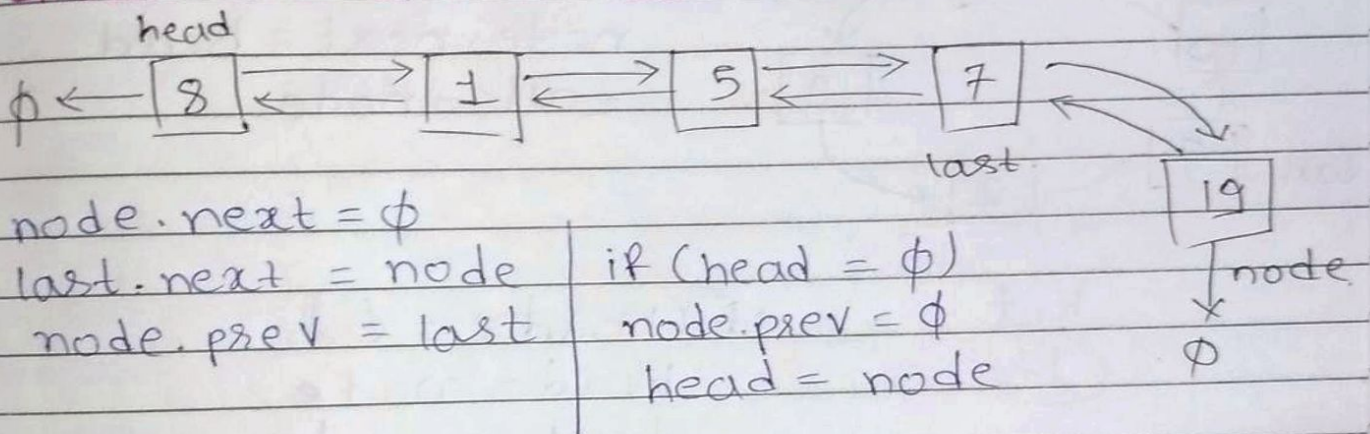 head
φ 8 1 5 7
last
19
node.next = φ
last.next = node
node.prev = last
if (head = φ)
node.prev = φ
head = node
node
φ